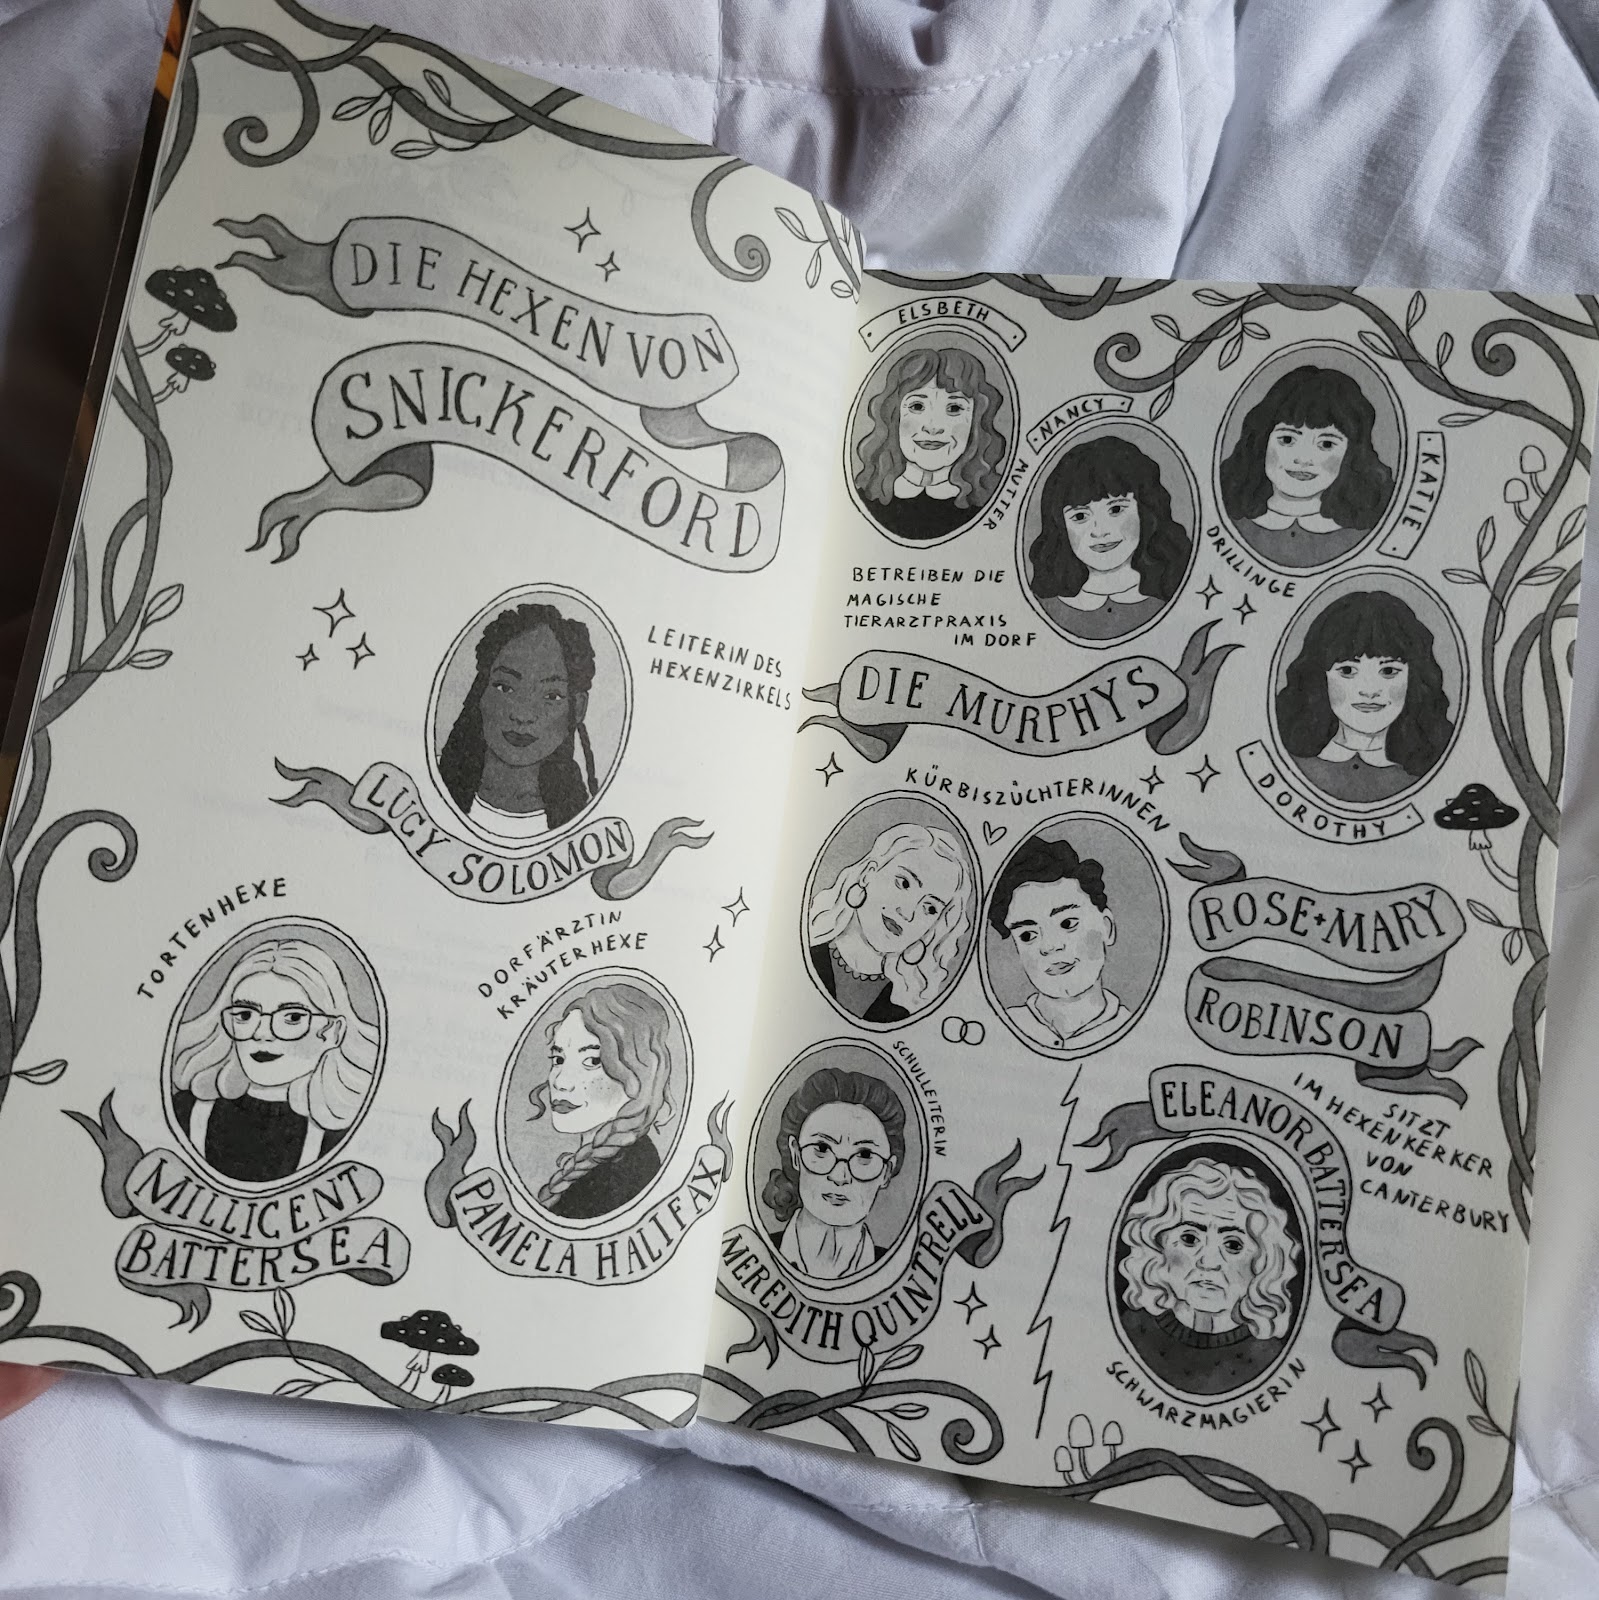 DIE HEXEN VON
SNICKERFORD
LEITERIN DES
HEXENZIRKELS
LUCY SOLOMON
TORTENHEXE
MILLICENT
BATTERSEA
DORFÄRZTIN
KRÄUTERHEXE
PAMELA HALIFAX
ELSBETH
MUTTER
NANCY
KATIE
DRILLINGE
DOROTHY
BETREIBEN DIE
MAGISCHE
TIERARZTPRAXIS
IM DORF
DIE MURPHYS
KÜRBISZÜCHTERINNEN
ROSE+MARY
ROBINSON
SCHULLEITERIN
MEREDITH QUINTRELL
ELEANOR BATTERSEA
SITZT
IM HEXENKERKER
VON
CANTERBURY
SCHWARZMAGIERIN